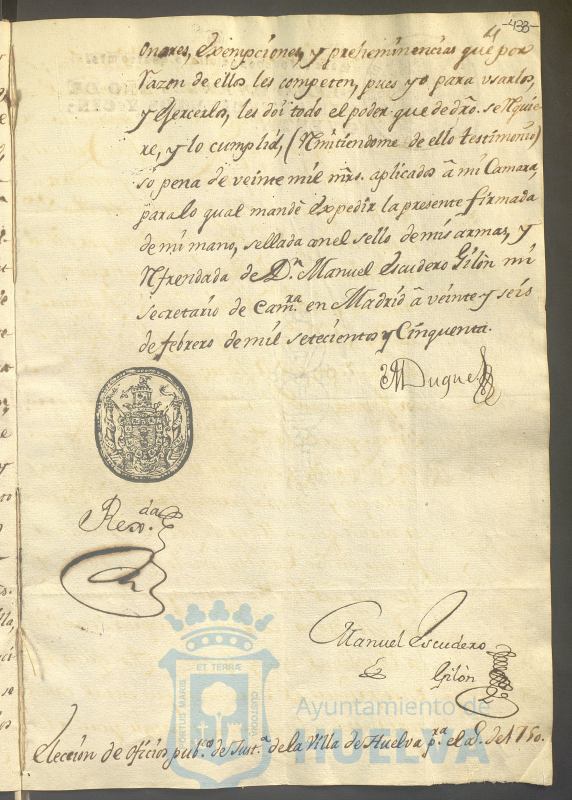 4
-433-
onores, exempciones, y preheminencias que por
razon de ellos les competen, pues yo para usarlos,
y exercerlos, les doi todo el poder que de dro. se rrquie-
re, y lo cumplid, (Rmitiendome de ello testimonio)
so pena de veinte mil mrs. aplicados â mi Camara,
para lo qual mandè expedir la presente firmada
de mi mano, sellada con el sello de mis armas, y
Rfrendada de Dn. Manuel Escudero Gilòn mi
secretario de Camra. en Madrid â veinte y seis
de febrero de mil setecientos y Cinquenta.
Duque
Rexda.
Manuel Escudero
Gilòn
PORTUS MARIS ET TERRÆ CUSTODIA
Ayuntamiento de
HUELVA
Elección de oficios pubcos. de Justa. de la Villa de Huelva pra. el aº. de 1750.